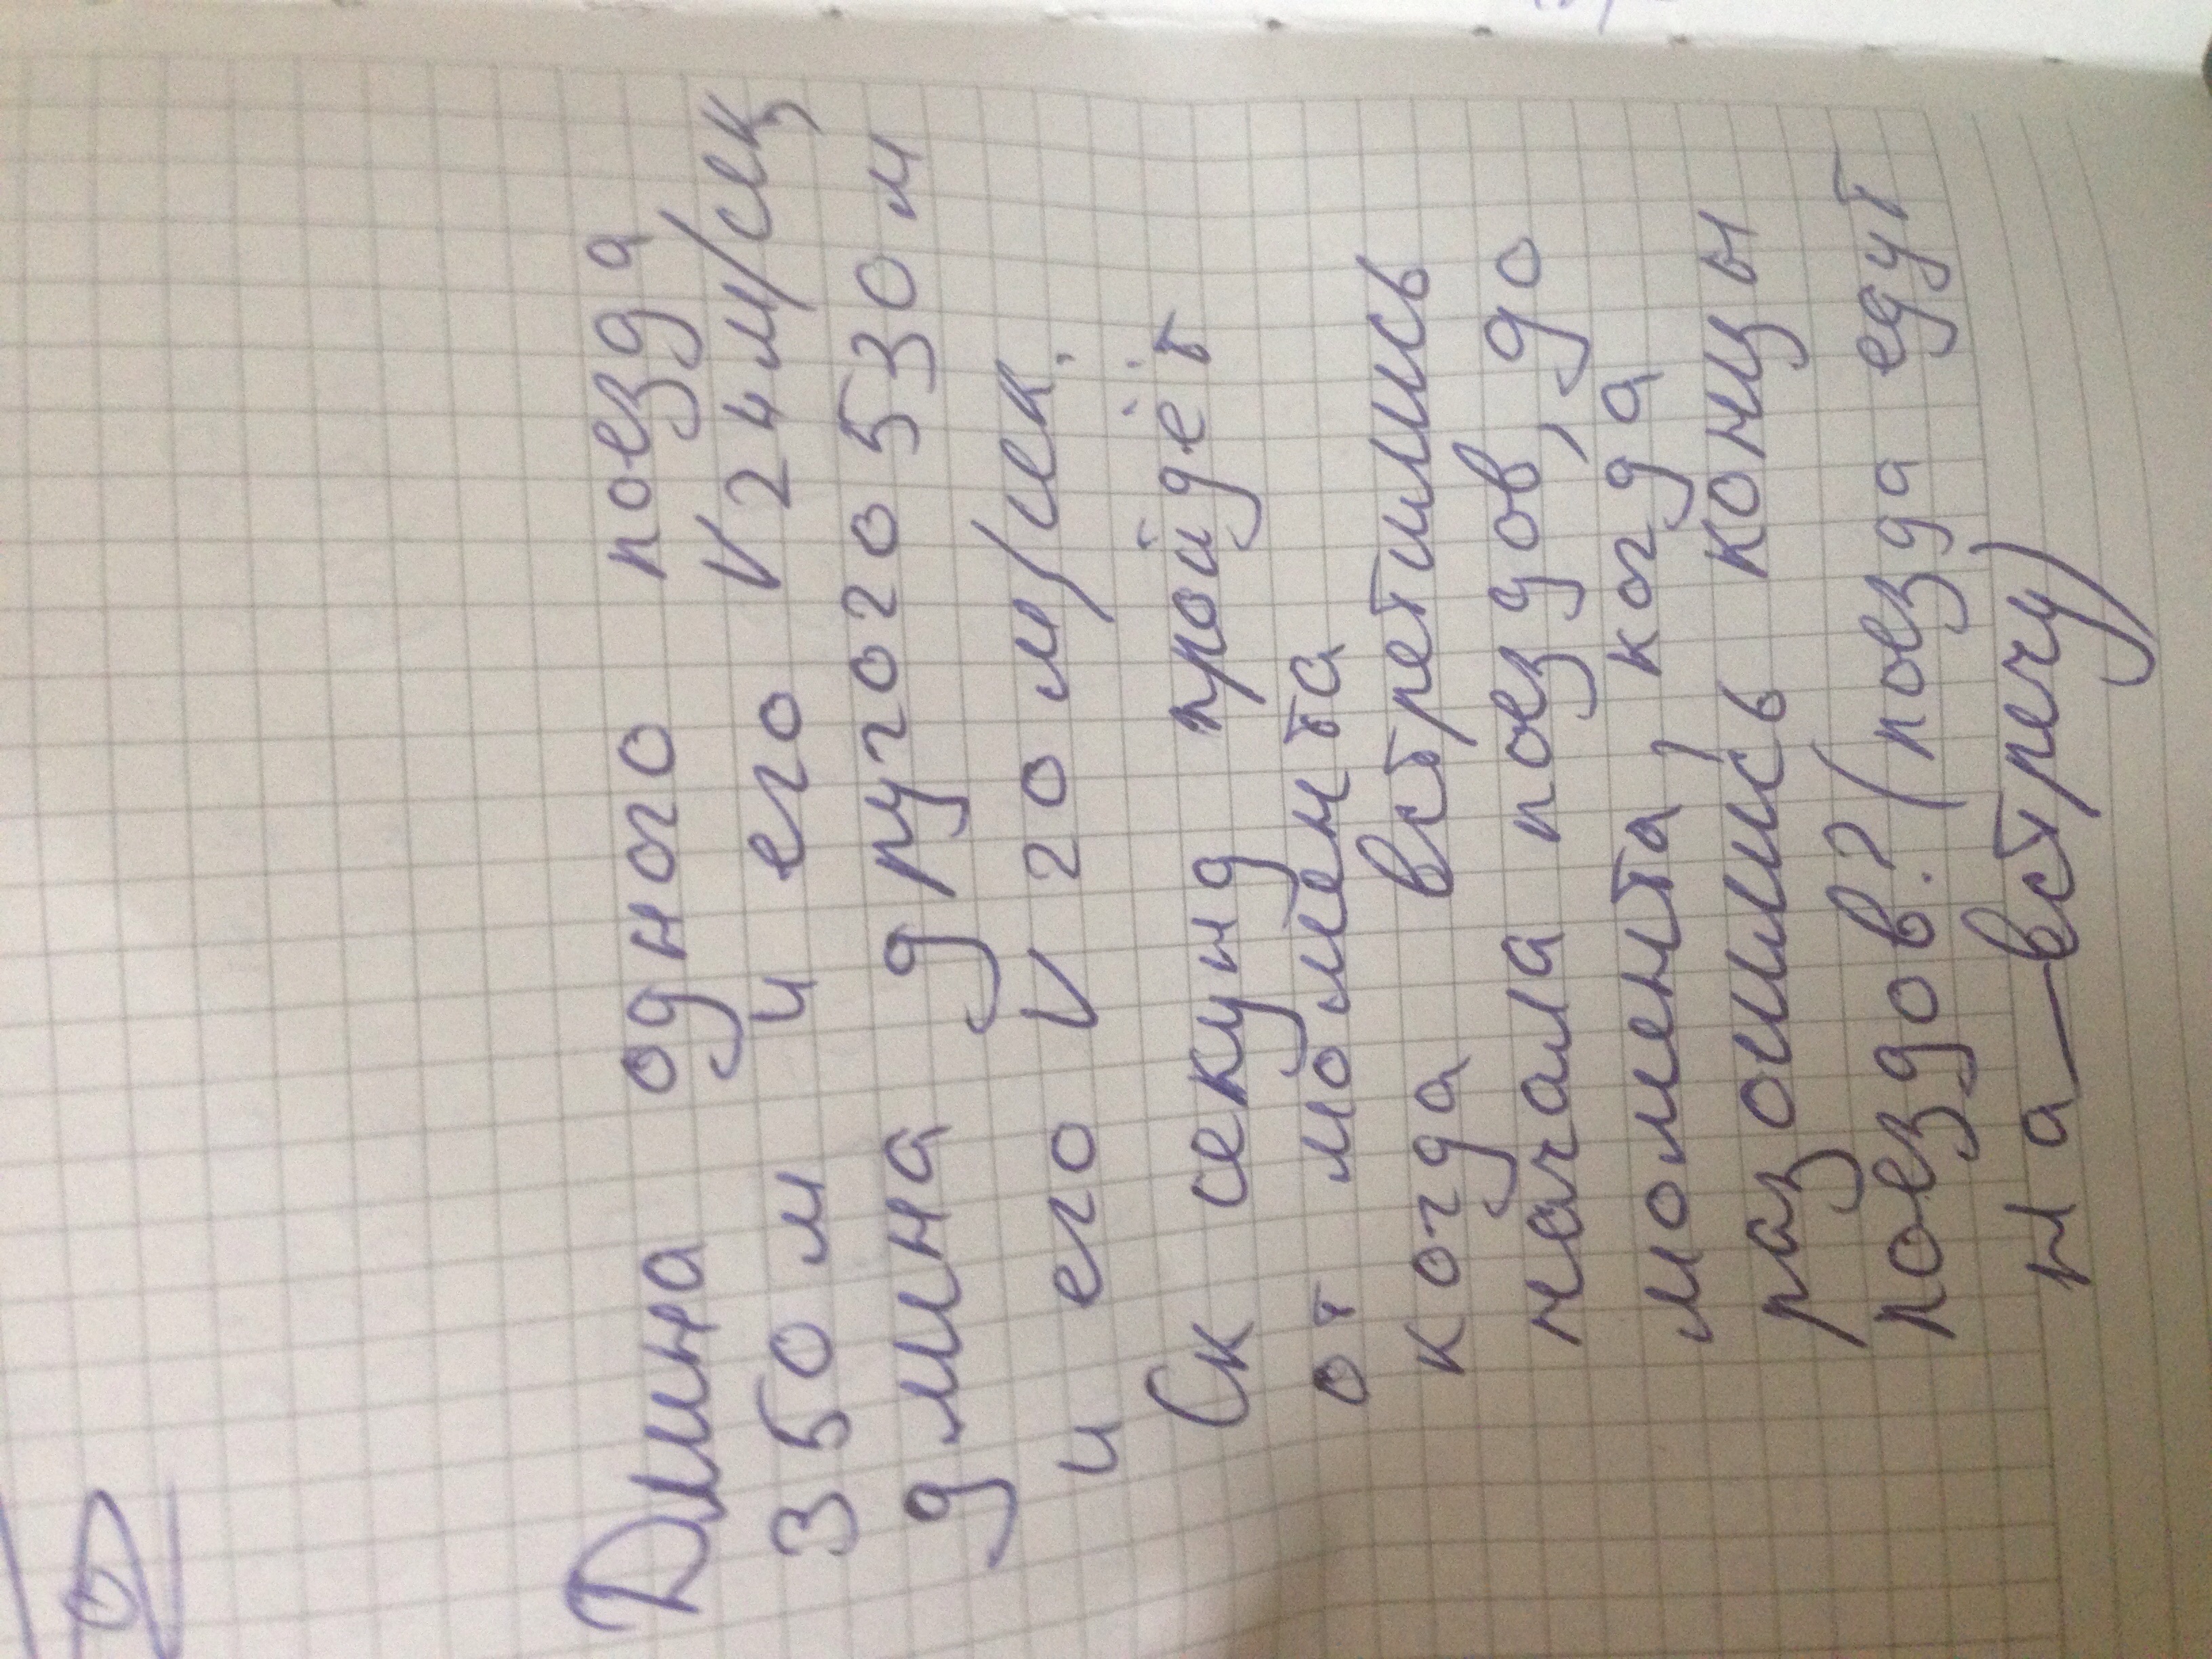 Длина одного поезда
350 м и его V 24 м/сек,
длина другого 530 м
и его V 20 м/сек.
Ск секунд пройдёт
от момента
когда встретились
начала поездов, до
момента, когда
разошлись концы
поездов? (поезда едут
на-встречу)